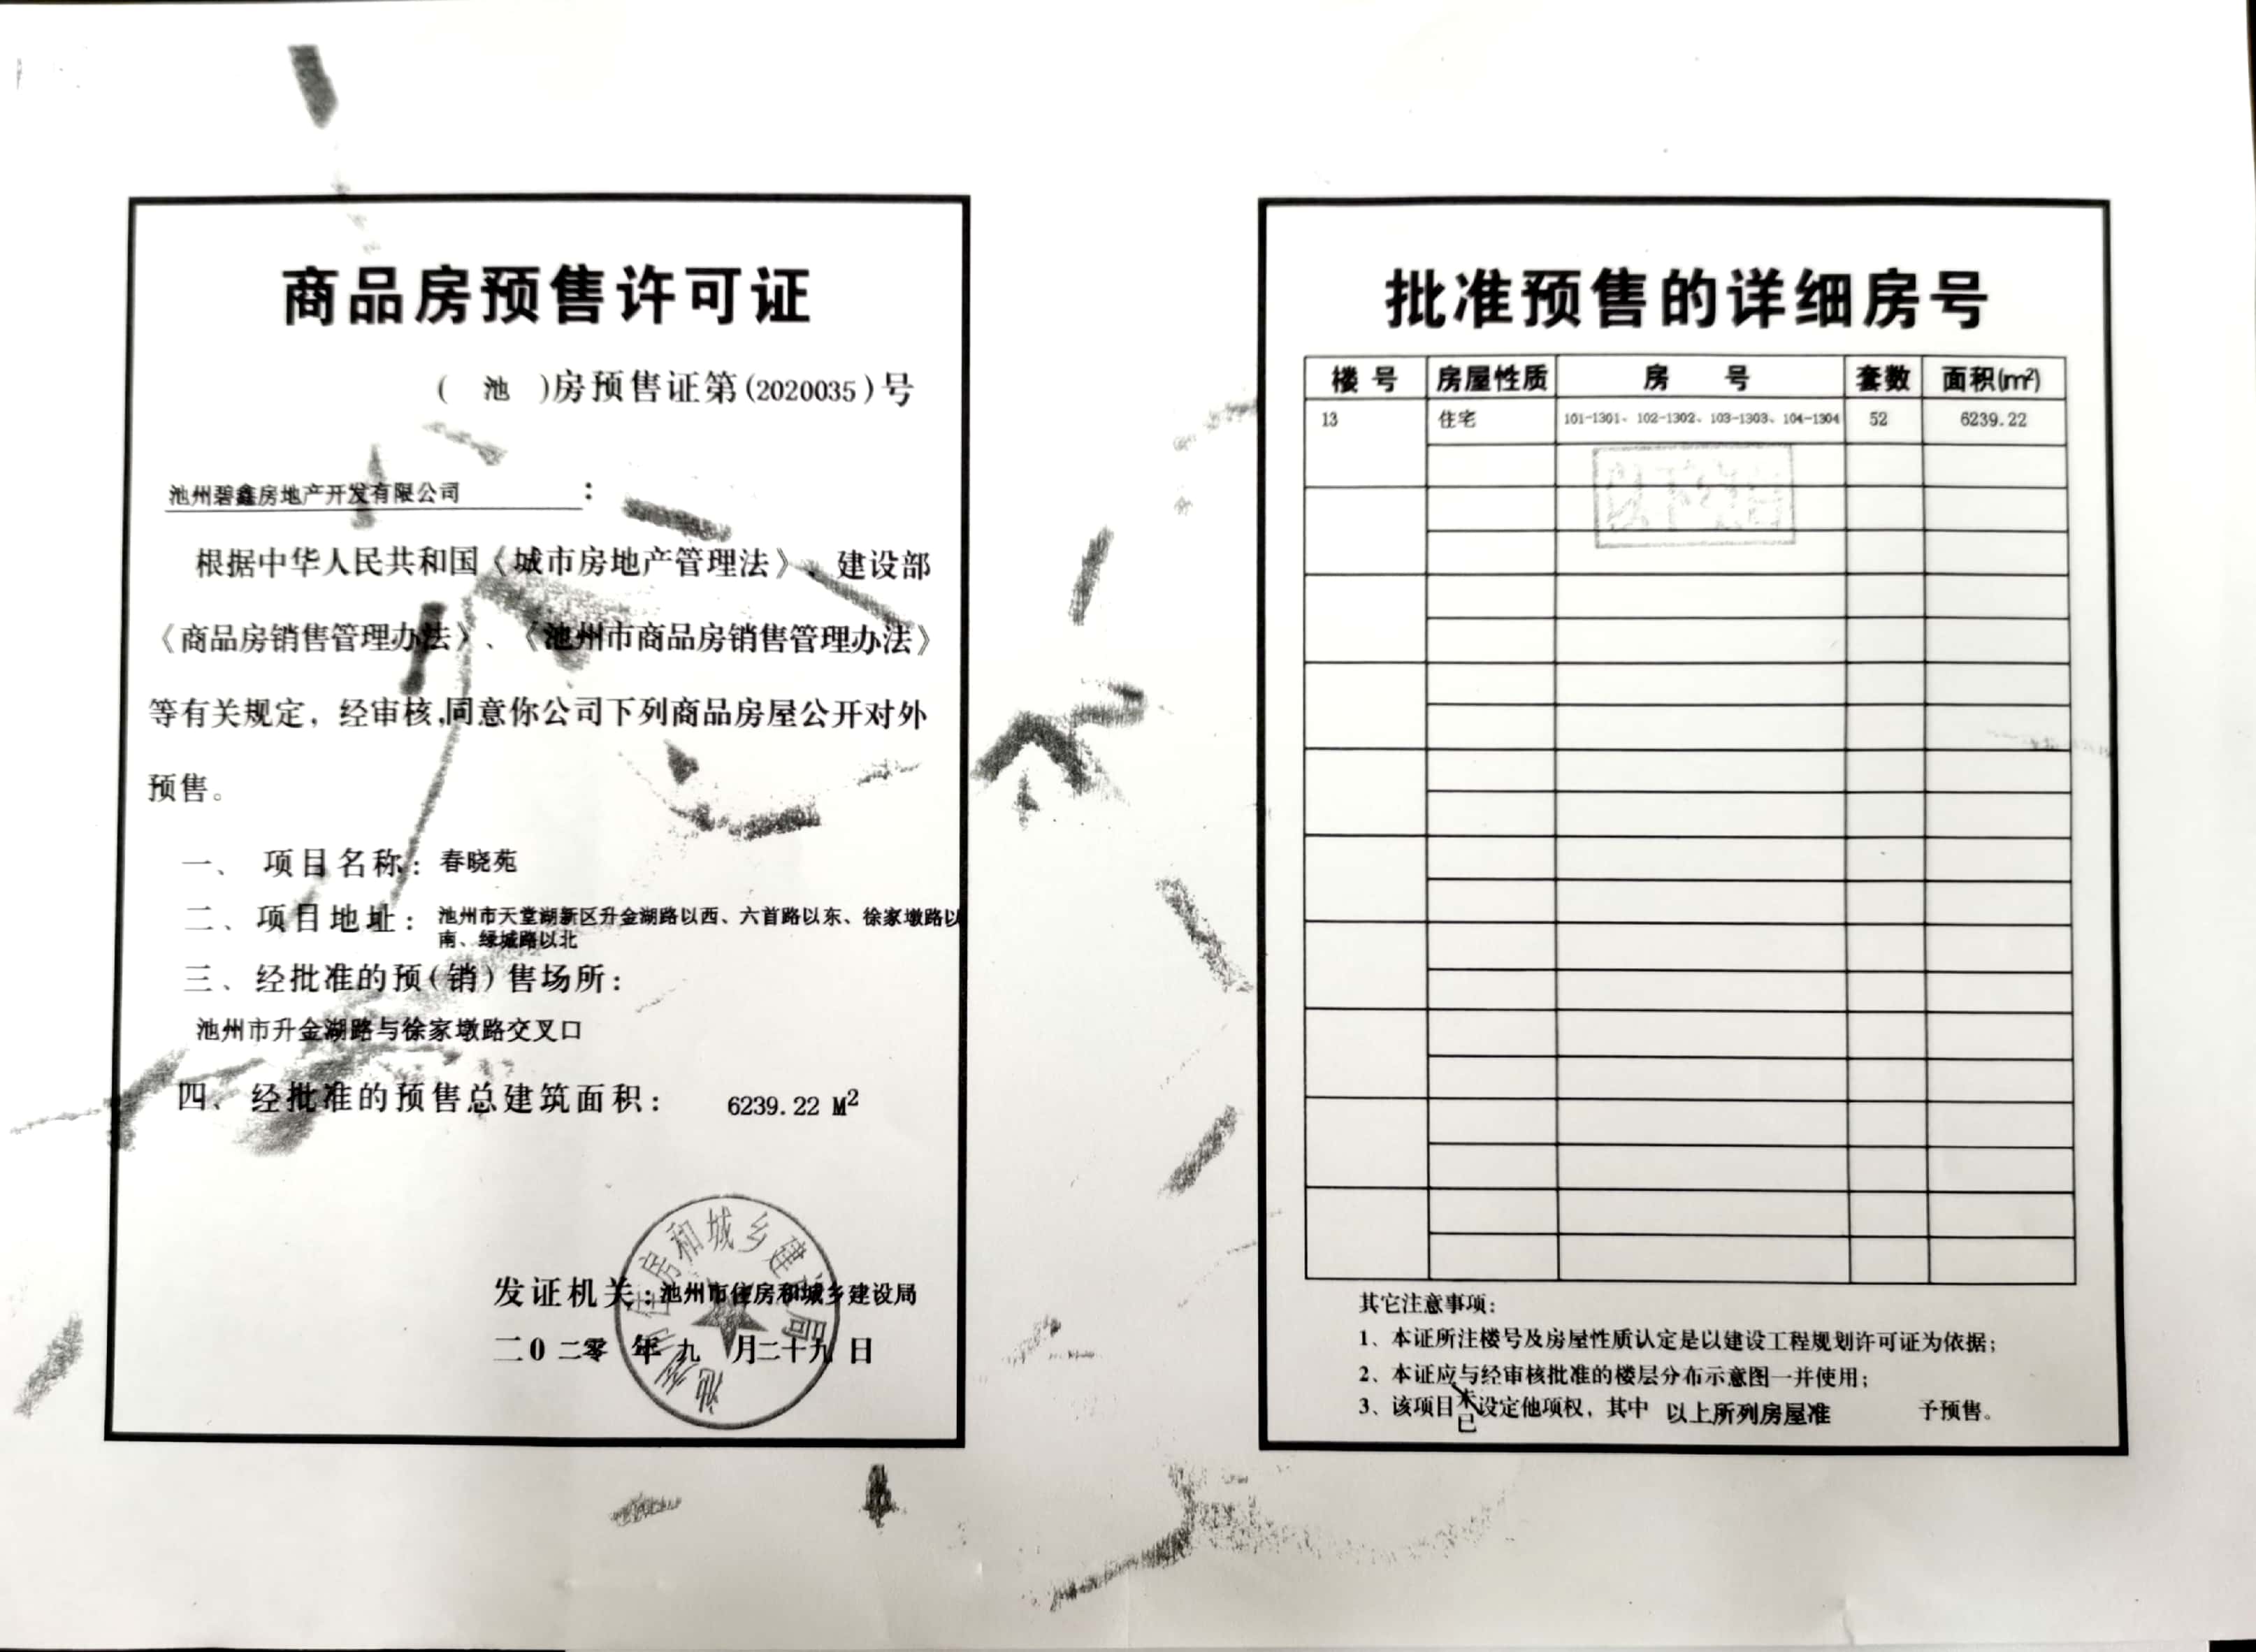 商品房预售许可证
( 池 )房预售证第(2020035)号
池州碧鑫房地产开发有限公司 :
根据中华人民共和国《城市房地产管理法》、建设部
《商品房销售管理办法》、《池州市商品房销售管理办法》
等有关规定，经审核,同意你公司下列商品房屋公开对外
预售。
一、 项目名称: 春晓苑
二、项目地址: 池州市天堂湖新区升金湖路以西、六首路以东、徐家墩路以
南、绿城路以北
三、经批准的预(销)售场所:
池州市升金湖路与徐家墩路交叉口
四、经批准的预售总建筑面积: 6239.22 M²
发证机关:池州市住房和城乡建设局
二0二零 年 九 月二十九 日
池州市住房和城乡建设局
批准预售的详细房号
楼 号 房屋性质 房 号 套数 面积(m²)
13 住宅 101-1301、102-1302、103-1303、104-1304 52 6239.22
其它注意事项:
1、本证所注楼号及房屋性质认定是以建设工程规划许可证为依据;
2、本证应与经审核批准的楼层分布示意图一并使用;
3、该项目未已设定他项权，其中 以上所列房屋准 予预售。